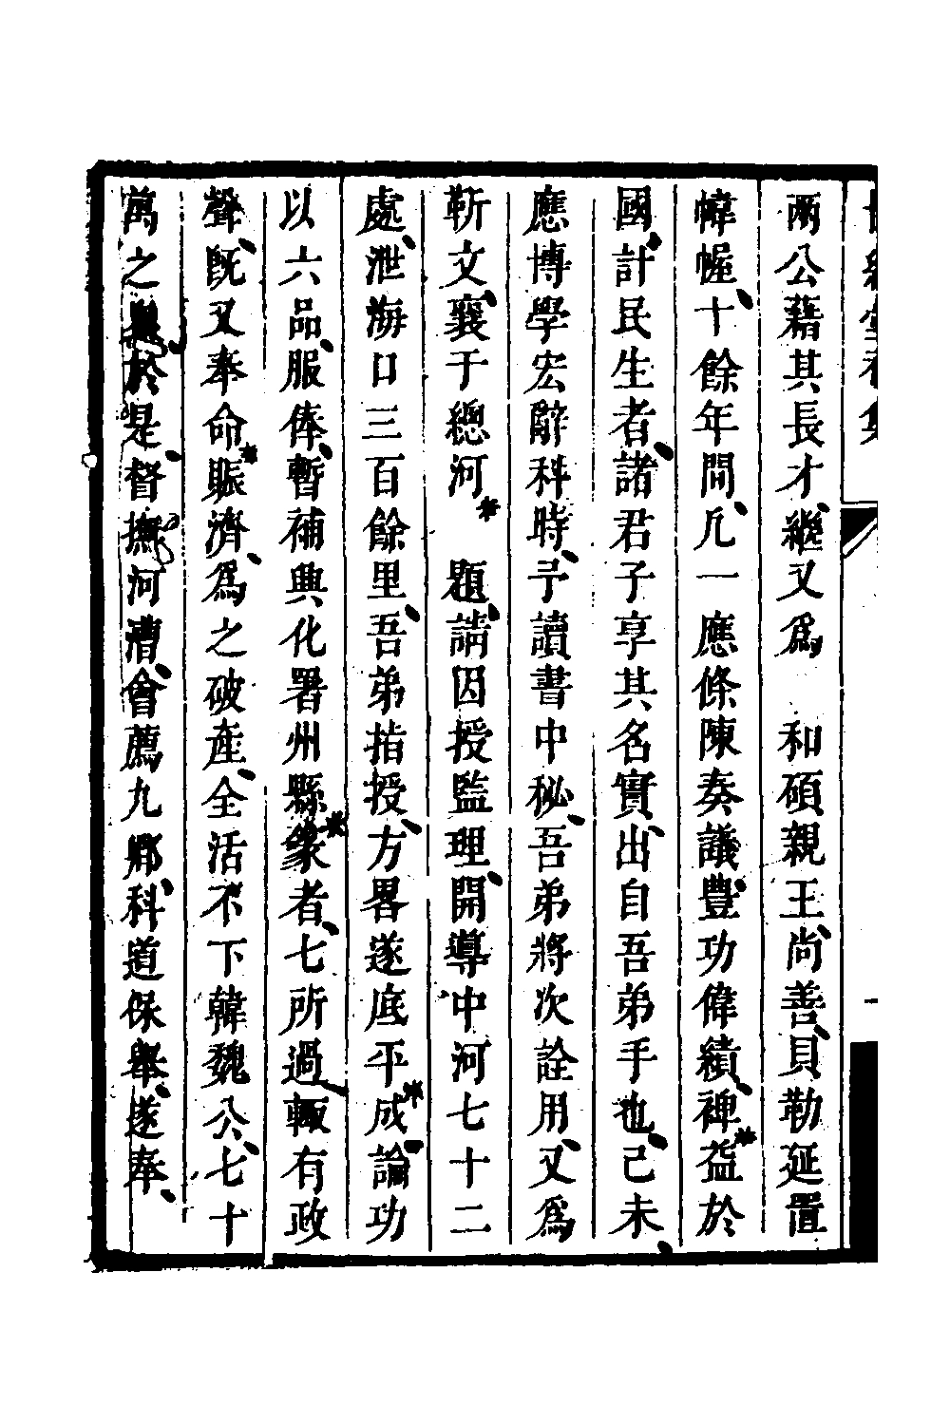 兩公藉其長才繼又爲　和碩親王尚善貝勒延置
幃幄十餘年間凢一應條陳奏議豐功偉績裨益於
國計民生者諸君子享其名實出自吾弟手也己未
應博學宏辭科時予讀書中秘吾弟將次詮用又爲
靳文襄于總河　題請因授監理開導中河七十二
處泄海口三百餘里吾弟指授方畧遂底平成論功
以六品服俸暫補興化署州縣篆者七所過輙有政
聲旣又奉命賑濟爲之破產全活不下韓魏公七十
萬之於是督撫河漕會薦九卿科道保舉遂奉